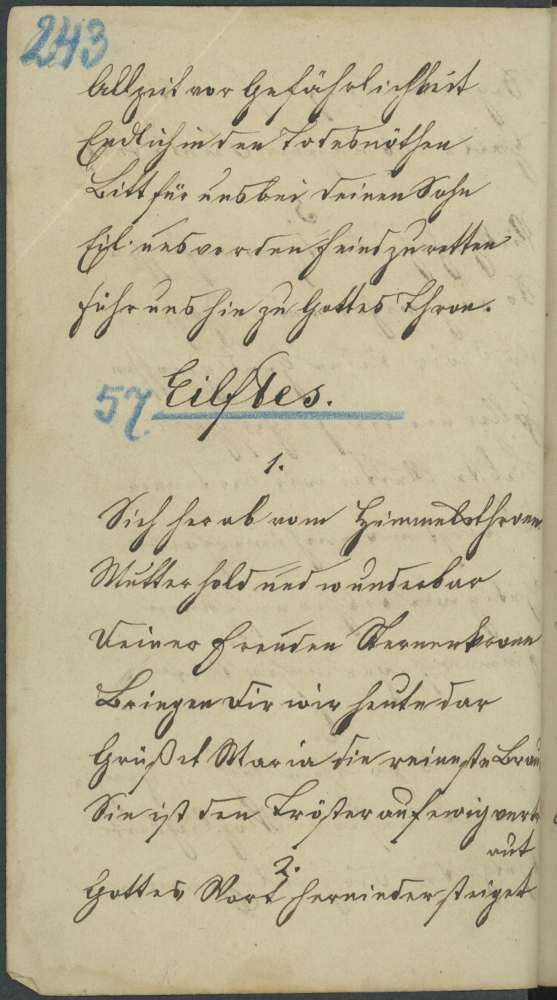 243
Allzeit vor Gefährlichkeit
Endlich in den Todesnöthen
Bitt für uns bei deinen Sohn
Eil uns vor den Feind zu retten
Führ uns hin zu Gottes Thron.
57 Eilftes.
1.
Sieh herab vom Himmelsthrone
Mutter hold und wunderbar
Deiner Freuden Sternenkrone
Bringen dir wir heute dar
Grüßet Maria die reinste Brau
Sie ist den Tröster auf ewig vertr
aut
2.
Gottes Wort hernieder steiget